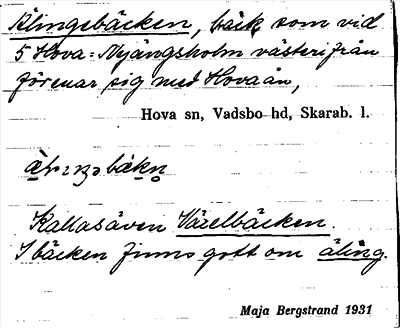 Älingsbäcken, bäck som vid
5 Hova = Nyängsholm västerifrån
förenar sig med Hovaån,
Hova sn, Vadsbo hd, Skarab. l.
Kallas även Värelbäcken.
I bäcken finns gott om äling.
Maja Bergstrand 1931